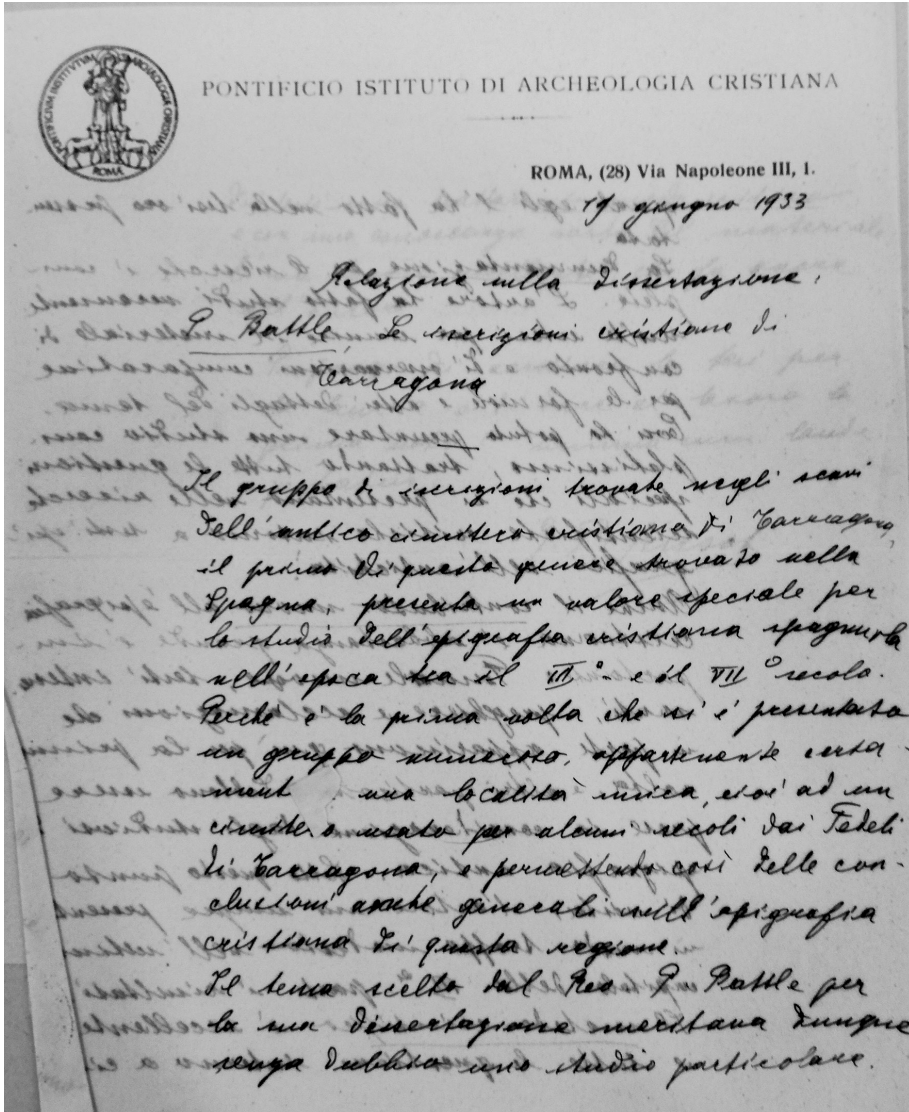 PONTIFICIUM INSTITUTUM ARCHAEOLOGIAE CHRISTIANAE
ROMA
PONTIFICIO ISTITUTO DI ARCHEOLOGIA CRISTIANA
ROMA, (28) Via Napoleone III, 1.
19 giugno 1933
Relazione sulla dissertazione:
P. Battle, Le iscrizioni cristiane di
Tarragona
Il gruppo di iscrizioni trovate negli scavi
dell'antico cimitero cristiano di Tarragona,
il primo di questo genere trovato nella
Spagna, presenta un valore speciale per
lo studio dell'epigrafia cristiana spagnuola
nell'epoca tra il III° e il VII° secolo.
Perchè è la prima volta che si è presentato
un gruppo numeroso, appartenente certa-
ment una località unica, cioè ad un
cimitero usato per alcuni secoli dai Fedeli
di Tarragona, e permettendo così delle con-
clusioni anche generali sull'epigrafia
cristiana di questa regione.
Il tema scelto dal Rev P. Battle per
la sua dissertazione meritava dunque
senza dubbio uno studio particolare.